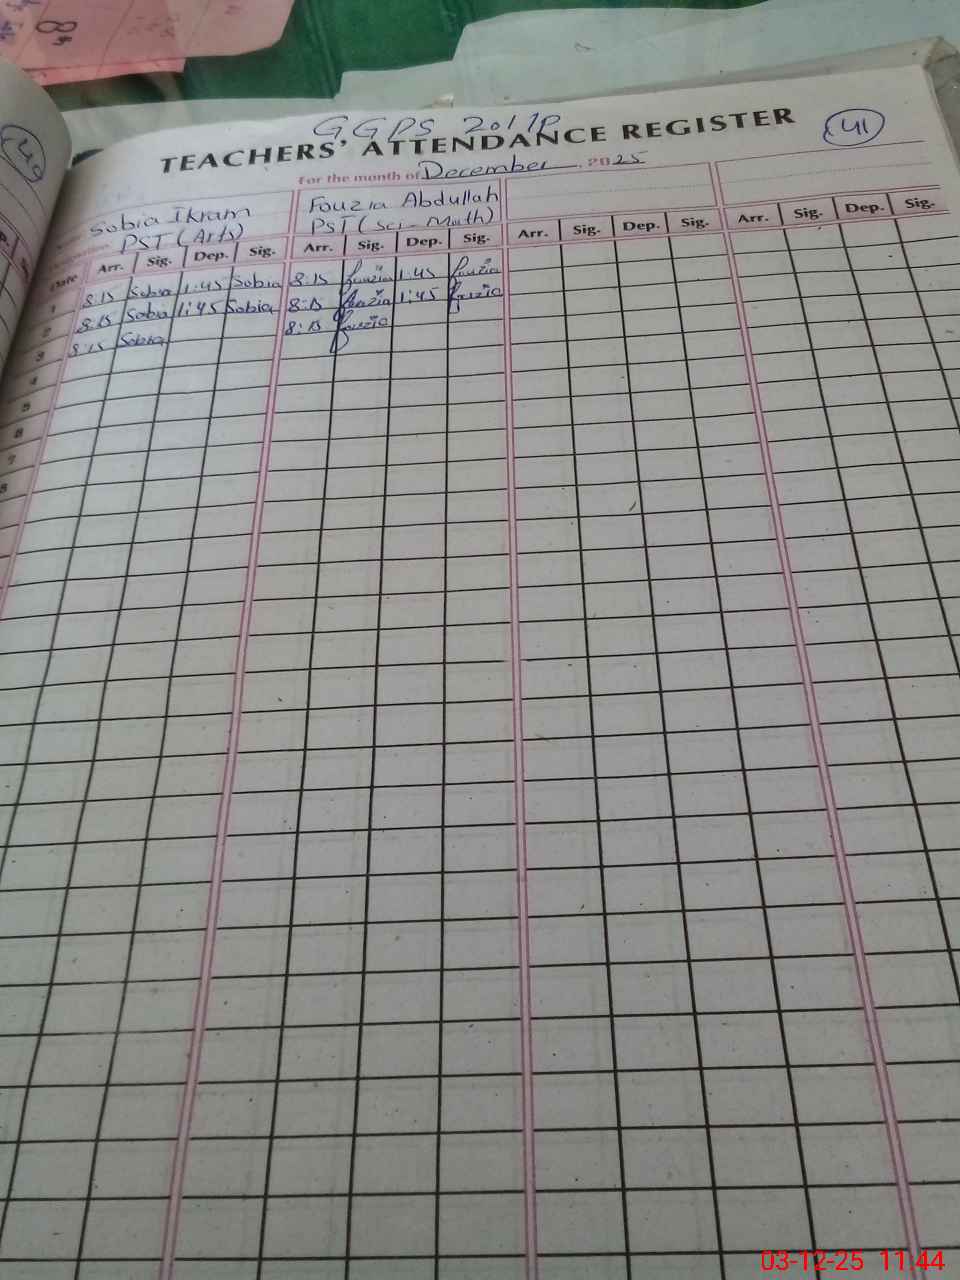 GGPS 201 1P
TEACHERS' ATTENDANCE REGISTER
41
40
For the month of December 2025
Sobia Ikram Fouzia Abdullah
PST (Arts) PST (Sci-Math)
Date Arr. Sig. Dep. Sig. Arr. Sig. Dep. Sig. Arr. Sig. Dep. Sig. Arr. Sig. Dep. Sig.
1 8:15 Sobia 1:45 Sobia 8:15 fouzia 1:45 fouzia
2 8:15 Sobia 1:45 Sobia 8:15 fouzia 1:45 fouzia
3 8:15 Sobia 8:15 fouzia
4
5
6
7
8
03-12-25 11:44